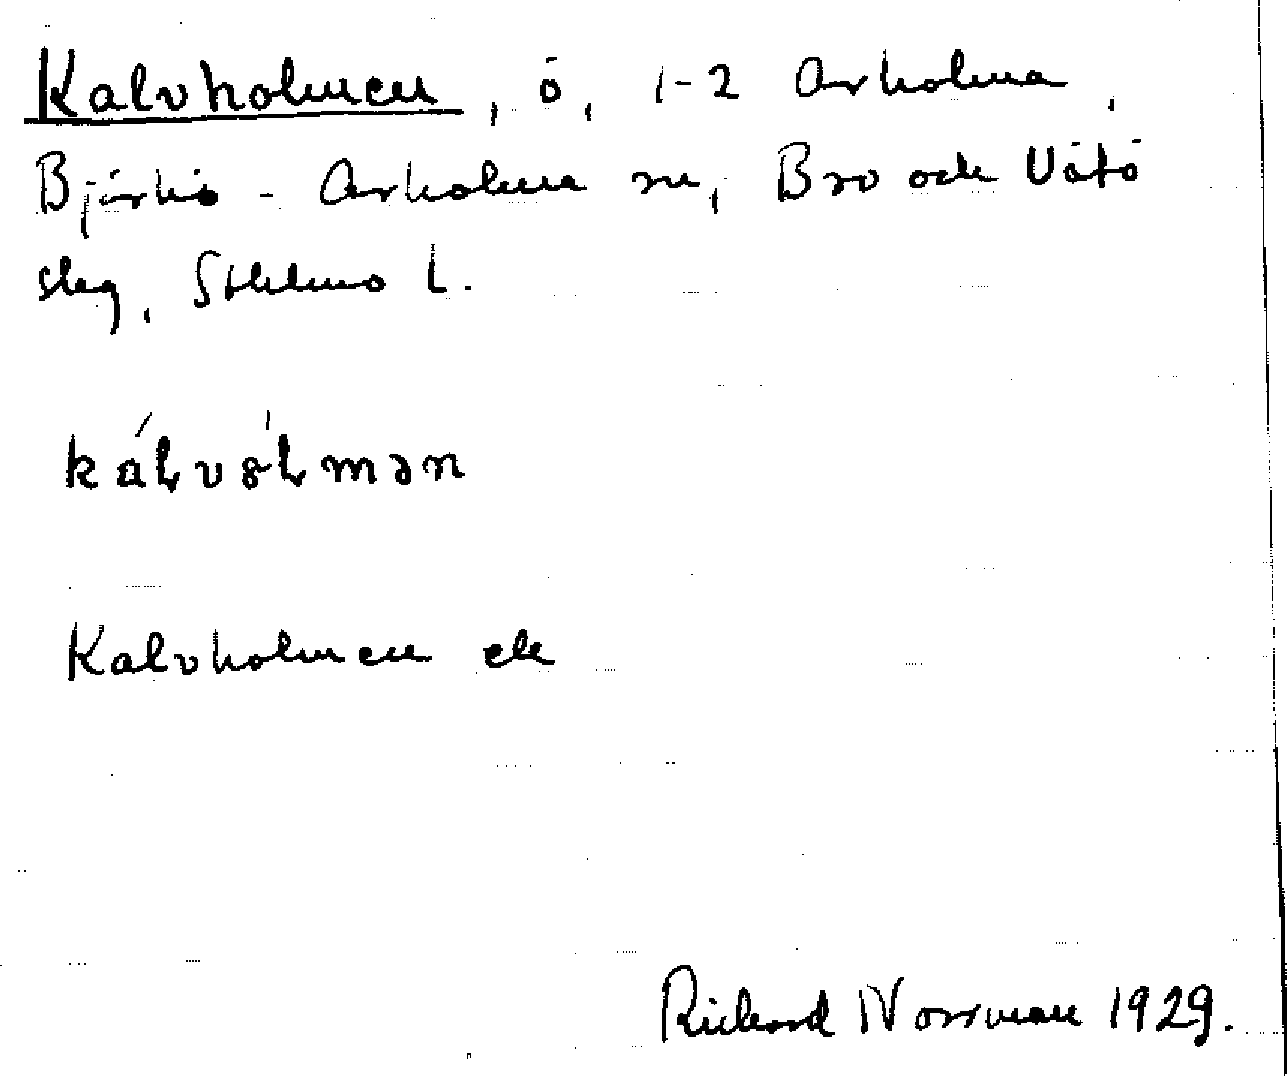 Kalvholmen, ö, 1-2 Arholma,
Björkö - Arholma sn, Bro och Vätö
slag, Sthlms l.
kálvɞ́lmən
Kalvholmen ek
Richard Norrman 1929.